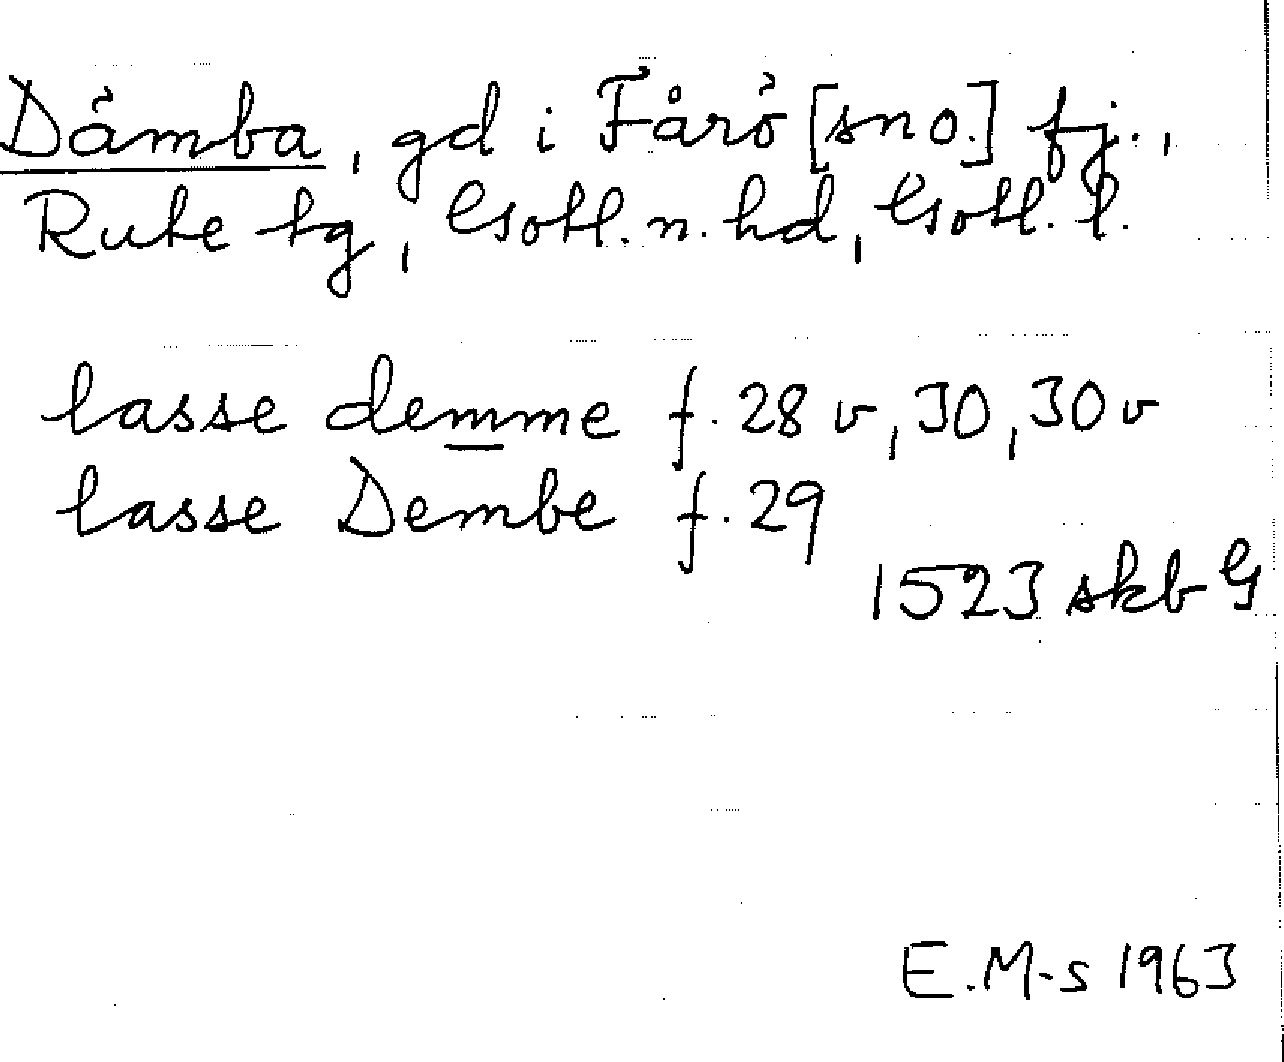 Dämba, gd i Fårö [sn o.] fj.,
Rute tg, Gotl. n. hd, Gotl. l.
lasse demme f. 28 v, 30, 30 v
lasse Dembe f. 29
1523 skb G
E. M-s 1963